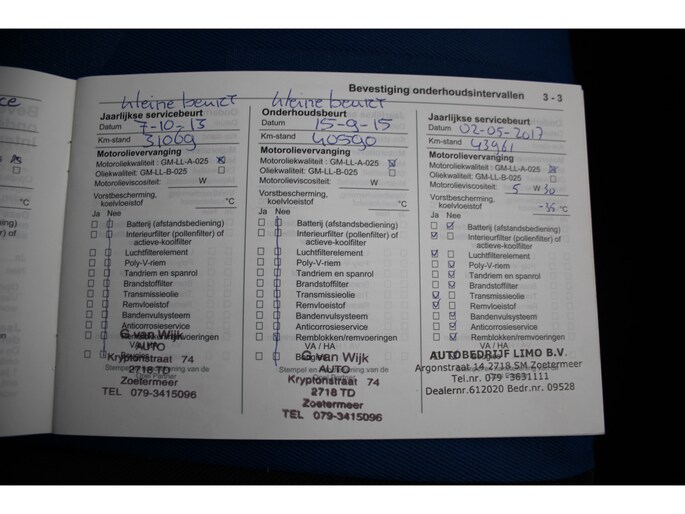 Bevestiging onderhoudsintervallen 3 - 3
kleine beurt
Jaarlijkse servicebeurt
Datum 7-10-13
Km-stand 31069
Motorolievervanging
Motoroliekwaliteit : GM-LL-A-025
Oliekwaliteit: GM-LL-B-025
Motorolieviscositeit: W
Vorstbescherming,
koelvloeistof °C
Ja Nee
Batterij (afstandsbediening)
Interieurfilter (pollenfilter) of
actieve-koolfilter
Luchtfilterelement
Poly-V-riem
Tandriem en spanrol
Brandstoffilter
Transmissieolie
Remvloeistof
Bandenvulsysteem
Anticorrosieservice
G van Wijk
AUTO
Kryptonstraat 74
2718 TD
Zoetermeer
TEL 079-3415096
kleine beurt
Onderhoudsbeurt
Datum 15-9-15
Km-stand 40590
Motorolievervanging
Motoroliekwaliteit : GM-LL-A-025
Oliekwaliteit: GM-LL-B-025
Motorolieviscositeit: W
Vorstbescherming,
koelvloeistof °C
Ja Nee
Batterij (afstandsbediening)
Interieurfilter (pollenfilter) of
actieve-koolfilter
Luchtfilterelement
Poly-V-riem
Tandriem en spanrol
Brandstoffilter
Transmissieolie
Remvloeistof
Bandenvulsysteem
Anticorrosieservice
Remblokken/remvoeringen
VA / HA
G van Wijk
AUTO
Kryptonstraat 74
2718 TD
Zoetermeer
TEL 079-3415096
Jaarlijkse servicebeurt
Datum 02-05-2017
Km-stand 43961
Motorolievervanging
Motoroliekwaliteit : GM-LL-A-025
Oliekwaliteit: GM-LL-B-025
Motorolieviscositeit: 5 W 30
Vorstbescherming,
koelvloeistof -35 °C
Ja Nee
Batterij (afstandsbediening)
Interieurfilter (pollenfilter) of
actieve-koolfilter
Luchtfilterelement
Poly-V-riem
Tandriem en spanrol
Brandstoffilter
Transmissieolie
Remvloeistof
Bandenvulsysteem
Anticorrosieservice
Remblokken/remvoeringen
VA / HA
AUTOBEDRIJF LIMO B.V.
Argonstraat 14 2718 SM Zoetermeer
Tel.nr. 079 3631111
Dealernr.612020 Bedr.nr. 09528